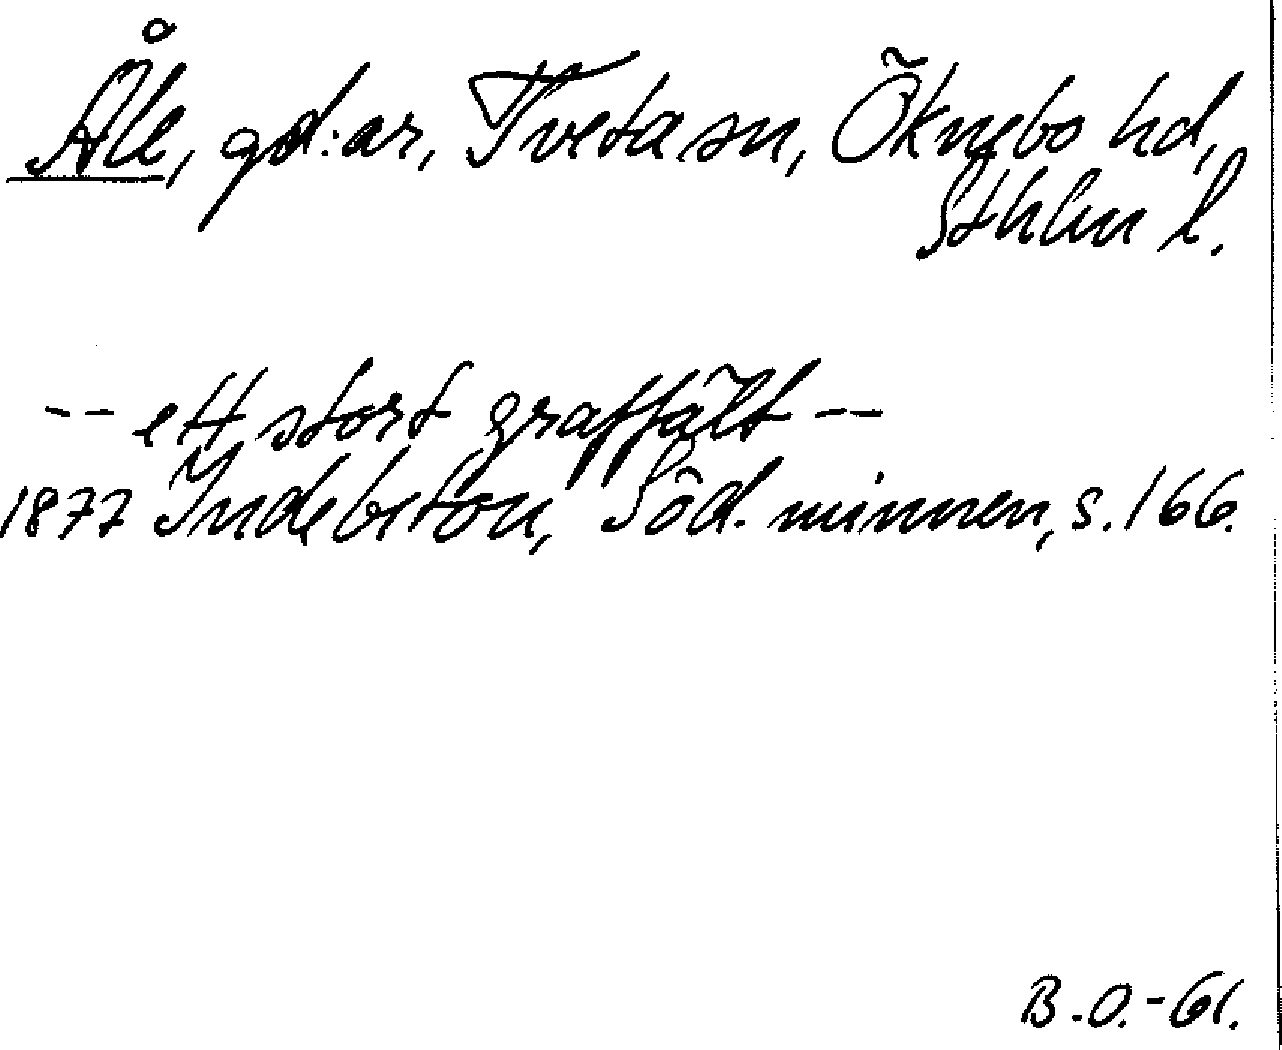 Åle, gd:ar, Tveta sn, Öknebo hd,
Sthlm l.
-- ett stort graffält --
1877 Indebetou, Söd. minnen, s. 166.
B.O.-61.